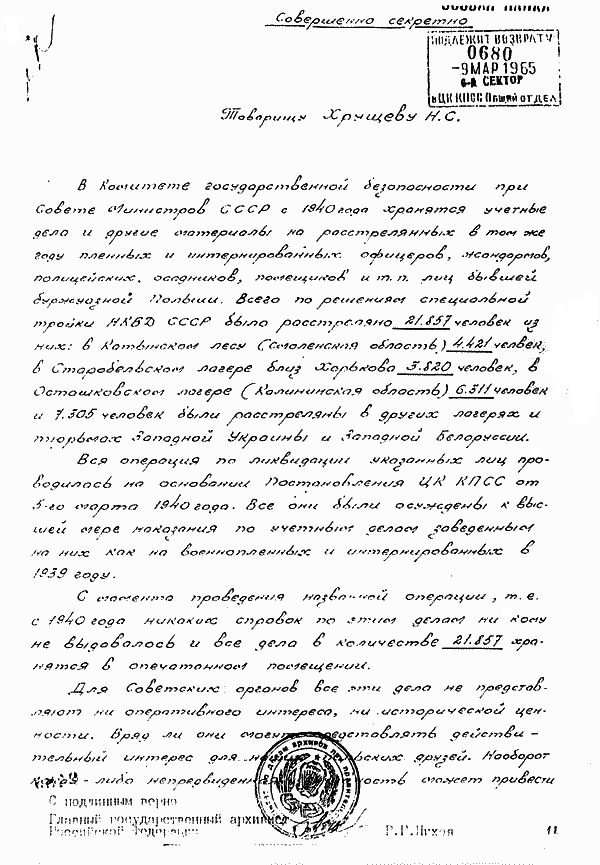 ОСОБАЯ ПАПКА
Совершенно секретно
ПОДЛЕЖИТ ВОЗВРАТУ
0680
-9 МАР 1965
6-й СЕКТОР
в ЦК КПСС Общий отдел
Товарищу Хрущеву Н.С.
В Комитете государственной безопасности при
Совете Министров СССР с 1940 года хранятся учетные
дела и другие материалы на расстрелянных в том же
году пленных и интернированных офицеров, жандармов,
полицейских, осадников, помещиков и т.п. лиц бывшей
буржуазной Польши. Всего по решениям специальной
тройки НКВД СССР было расстреляно 21.857 человек из
них: в Катынском лесу (Смоленская область) 4.421 человек,
в Старобельском лагере близ Харькова 3.820 человек, в
Осташковском лагере (Калининская область) 6.311 человек
и 7.305 человек были расстреляны в других лагерях и
тюрьмах Западной Украины и Западной Белоруссии.
Вся операция по ликвидации указанных лиц про-
водилась на основании Постановления ЦК КПСС от
5-го марта 1940 года. Все они были осуждены к выс-
шей мере наказания по учетным делам заведенным
на них как на военнопленных и интернированных в
1939 году.
С момента проведения названной операции, т.е.
с 1940 года никаких справок по этим делам ни кому
не выдавалось и все дела в количестве 21.857 хра-
нятся в опечатанном помещении.
Для Советских органов все эти дела не представ-
ляют ни оперативного интереса, ни исторической цен-
ности. Вряд ли они могут представлять действи-
тельный интерес для друзей. Наоборот
какая-либо может привести
С подлинным верно
Главный государственный архивист
Российской Федерации Р.Г.Пихоя
11